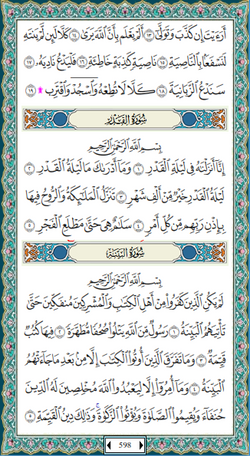 أَرَءَيْتَ إِن كَذَّبَ وَتَوَلَّىٰٓ ١٣ أَلَمْ يَعْلَم بِأَنَّ ٱللَّهَ يَرَىٰ ١٤ كَلَّا لَئِن لَّمْ يَنتَهِ
لَنَسْفَعًۢا بِٱلنَّاصِيَةِ ١٥ نَاصِيَةٍ كَٰذِبَةٍ خَاطِئَةٍ ١٦ فَلْيَدْعُ نَادِيَهُۥ ١٧
سَنَدْعُ ٱلزَّبَانِيَةَ ١٨ كَلَّا لَا تُطِعْهُ وَٱسْجُدْ وَٱقْتَرِب ۩ ١٩
سُورَةُ القَدْرِ
بِسْمِ ٱللَّهِ ٱلرَّحْمَٰنِ ٱلرَّحِيمِ
إِنَّآ أَنزَلْنَٰهُ فِى لَيْلَةِ ٱلْقَدْرِ ١ وَمَآ أَدْرَىٰكَ مَا لَيْلَةُ ٱلْقَدْرِ ٢
لَيْلَةُ ٱلْقَدْرِ خَيْرٌ مِّنْ أَلْفِ شَهْرٍ ٣ تَنَزَّلُ ٱلْمَلَٰٓئِكَةُ وَٱلرُّوحُ فِيهَا
بِإِذْنِ رَبِّهِم مِّن كُلِّ أَمْرٍ ٤ سَلَٰمٌ هِىَ حَتَّىٰ مَطْلَعِ ٱلْفَجْرِ ٥
سُورَةُ البَيِّنَةِ
بِسْمِ ٱللَّهِ ٱلرَّحْمَٰنِ ٱلرَّحِيمِ
لَمْ يَكُنِ ٱلَّذِينَ كَفَرُوا۟ مِنْ أَهْلِ ٱلْكِتَٰبِ وَٱلْمُشْرِكِينَ مُنفَكِّينَ حَتَّىٰ
تَأْتِيَهُمُ ٱلْبَيِّنَةُ ١ رَسُولٌ مِّنَ ٱللَّهِ يَتْلُوا۟ صُحُفًا مُّطَهَّرَةً ٢ فِيهَا كُتُبٌ
قَيِّمَةٌ ٣ وَمَا تَفَرَّقَ ٱلَّذِينَ أُوتُوا۟ ٱلْكِتَٰبَ إِلَّا مِنۢ بَعْدِ مَا جَآءَتْهُمُ
ٱلْبَيِّنَةُ ٤ وَمَآ أُمِرُوٓا۟ إِلَّا لِيَعْبُدُوا۟ ٱللَّهَ مُخْلِصِينَ لَهُ ٱلدِّينَ
حُنَفَآءَ وَيُقِيمُوا۟ ٱلصَّلَوٰةَ وَيُؤْتُوا۟ ٱلزَّكَوٰةَ ۚ وَذَٰلِكَ دِينُ ٱلْقَيِّمَةِ ٥
598